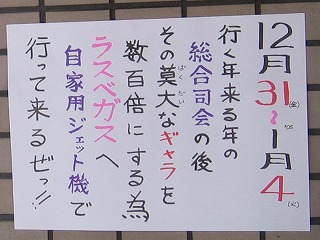 12月31(金)～1月4(火)
行く年来る年の
総合司会の後
その莫大なギャラを
数百倍にする為
ラスベガスへ
自家用ジェット機で
行って来るぜっ!!